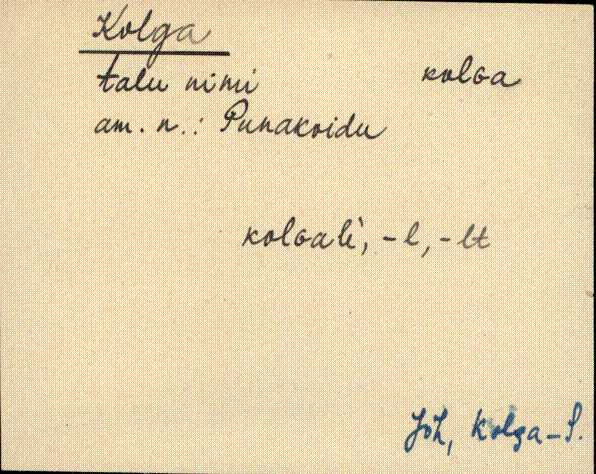 Kolga
talu nimi kolGa
am. n.: Punakoidu
kolGalè, -l, -lt
Jõh, Kolga-S.